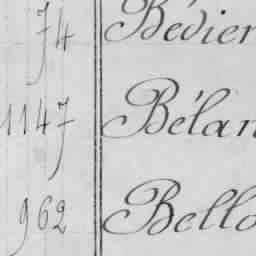 74 Bédier
1147 Bélan
962 Bello